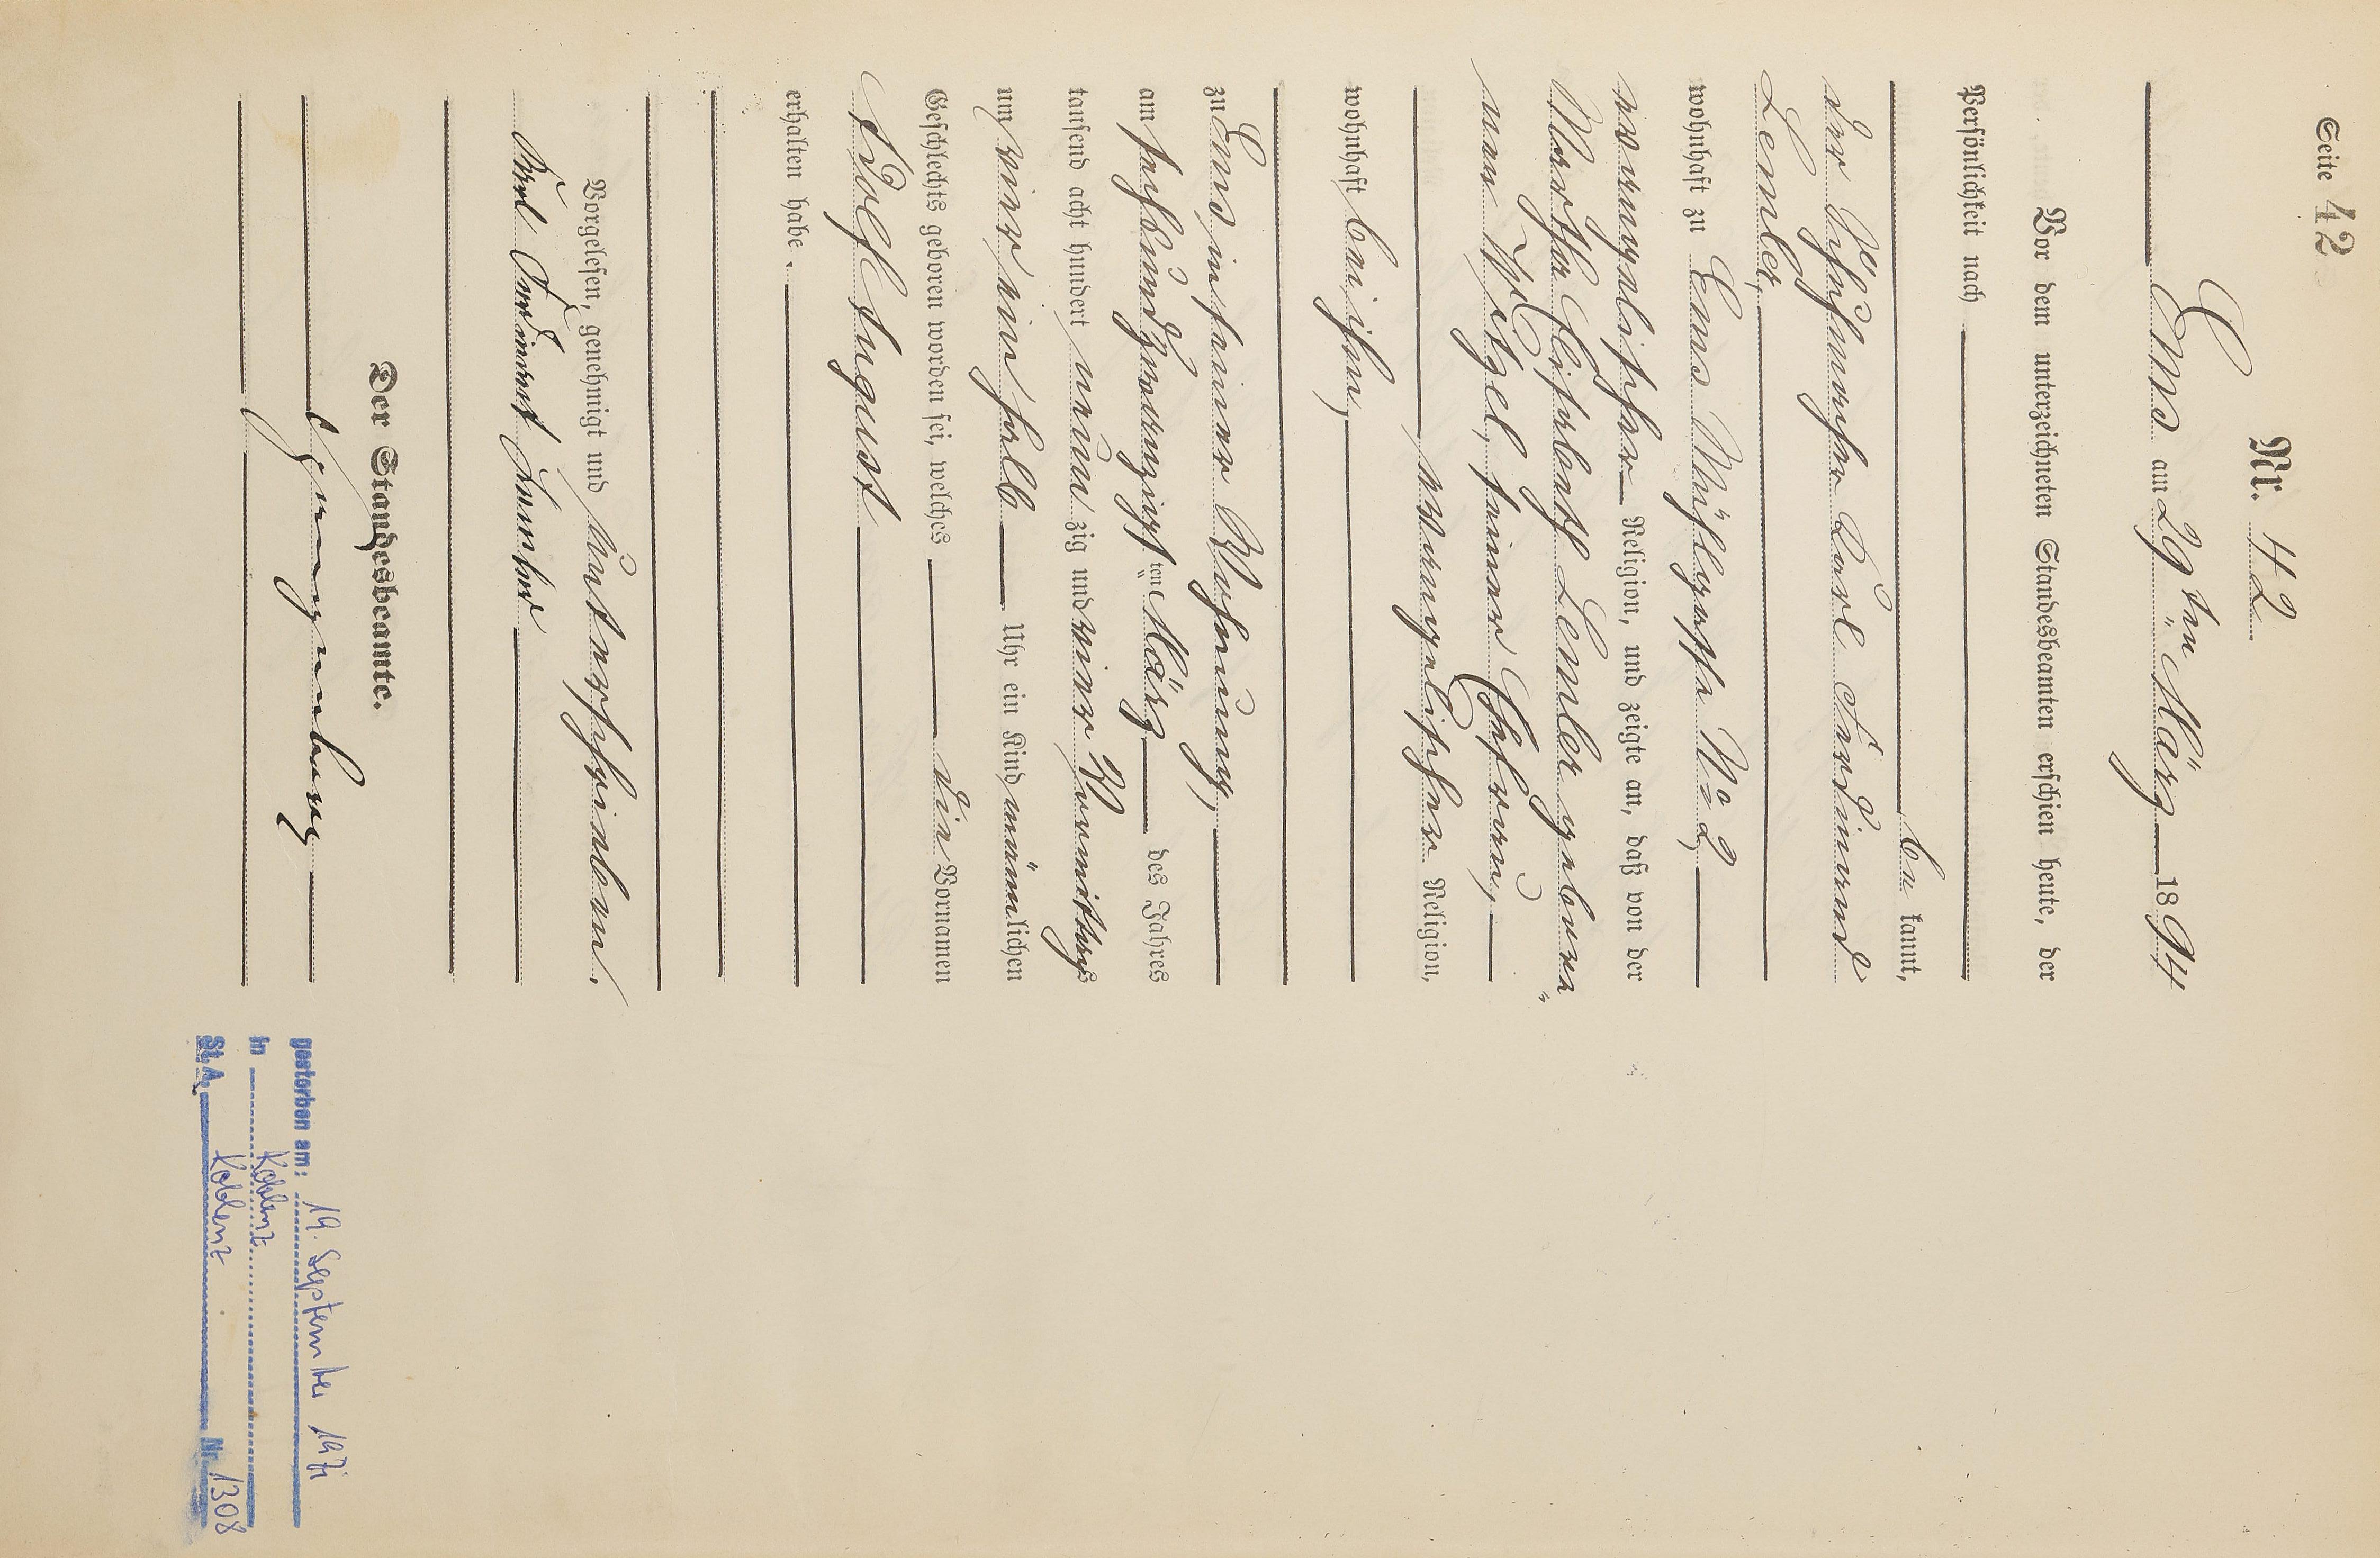 Seite 42
Nr. 42
Ems am 29 ten März 1894
Vor dem unterzeichneten Standesbeamten erschien heute, der
Persönlichkeit nach
be kannt,
der Carl Ferdinand
wohnhaft zu Ems No 2,
evangelischer Religion, und zeigte an, daß von der
Martha Elisabeth geborene
seiner Ehefrau,
evangelischer Religion,
wohnhaft bei ihm,
zu Ems in seiner Wohnung,
am sechsundzwanzigsten März des Jahres
tausend acht hundert neun zig und vier Vormittags
um vier ein halb Uhr ein Kind männlichen
Geschlechts geboren worden sei, welches die Vornamen
Adolf August
erhalten habe.
Vorgelesen, genehmigt und unterschrieben.
Karl Ferdinand
Der Standesbeamte.
gestorben am: 19. September 1971
in Koblenz
St. A. Koblenz Nr. 1308